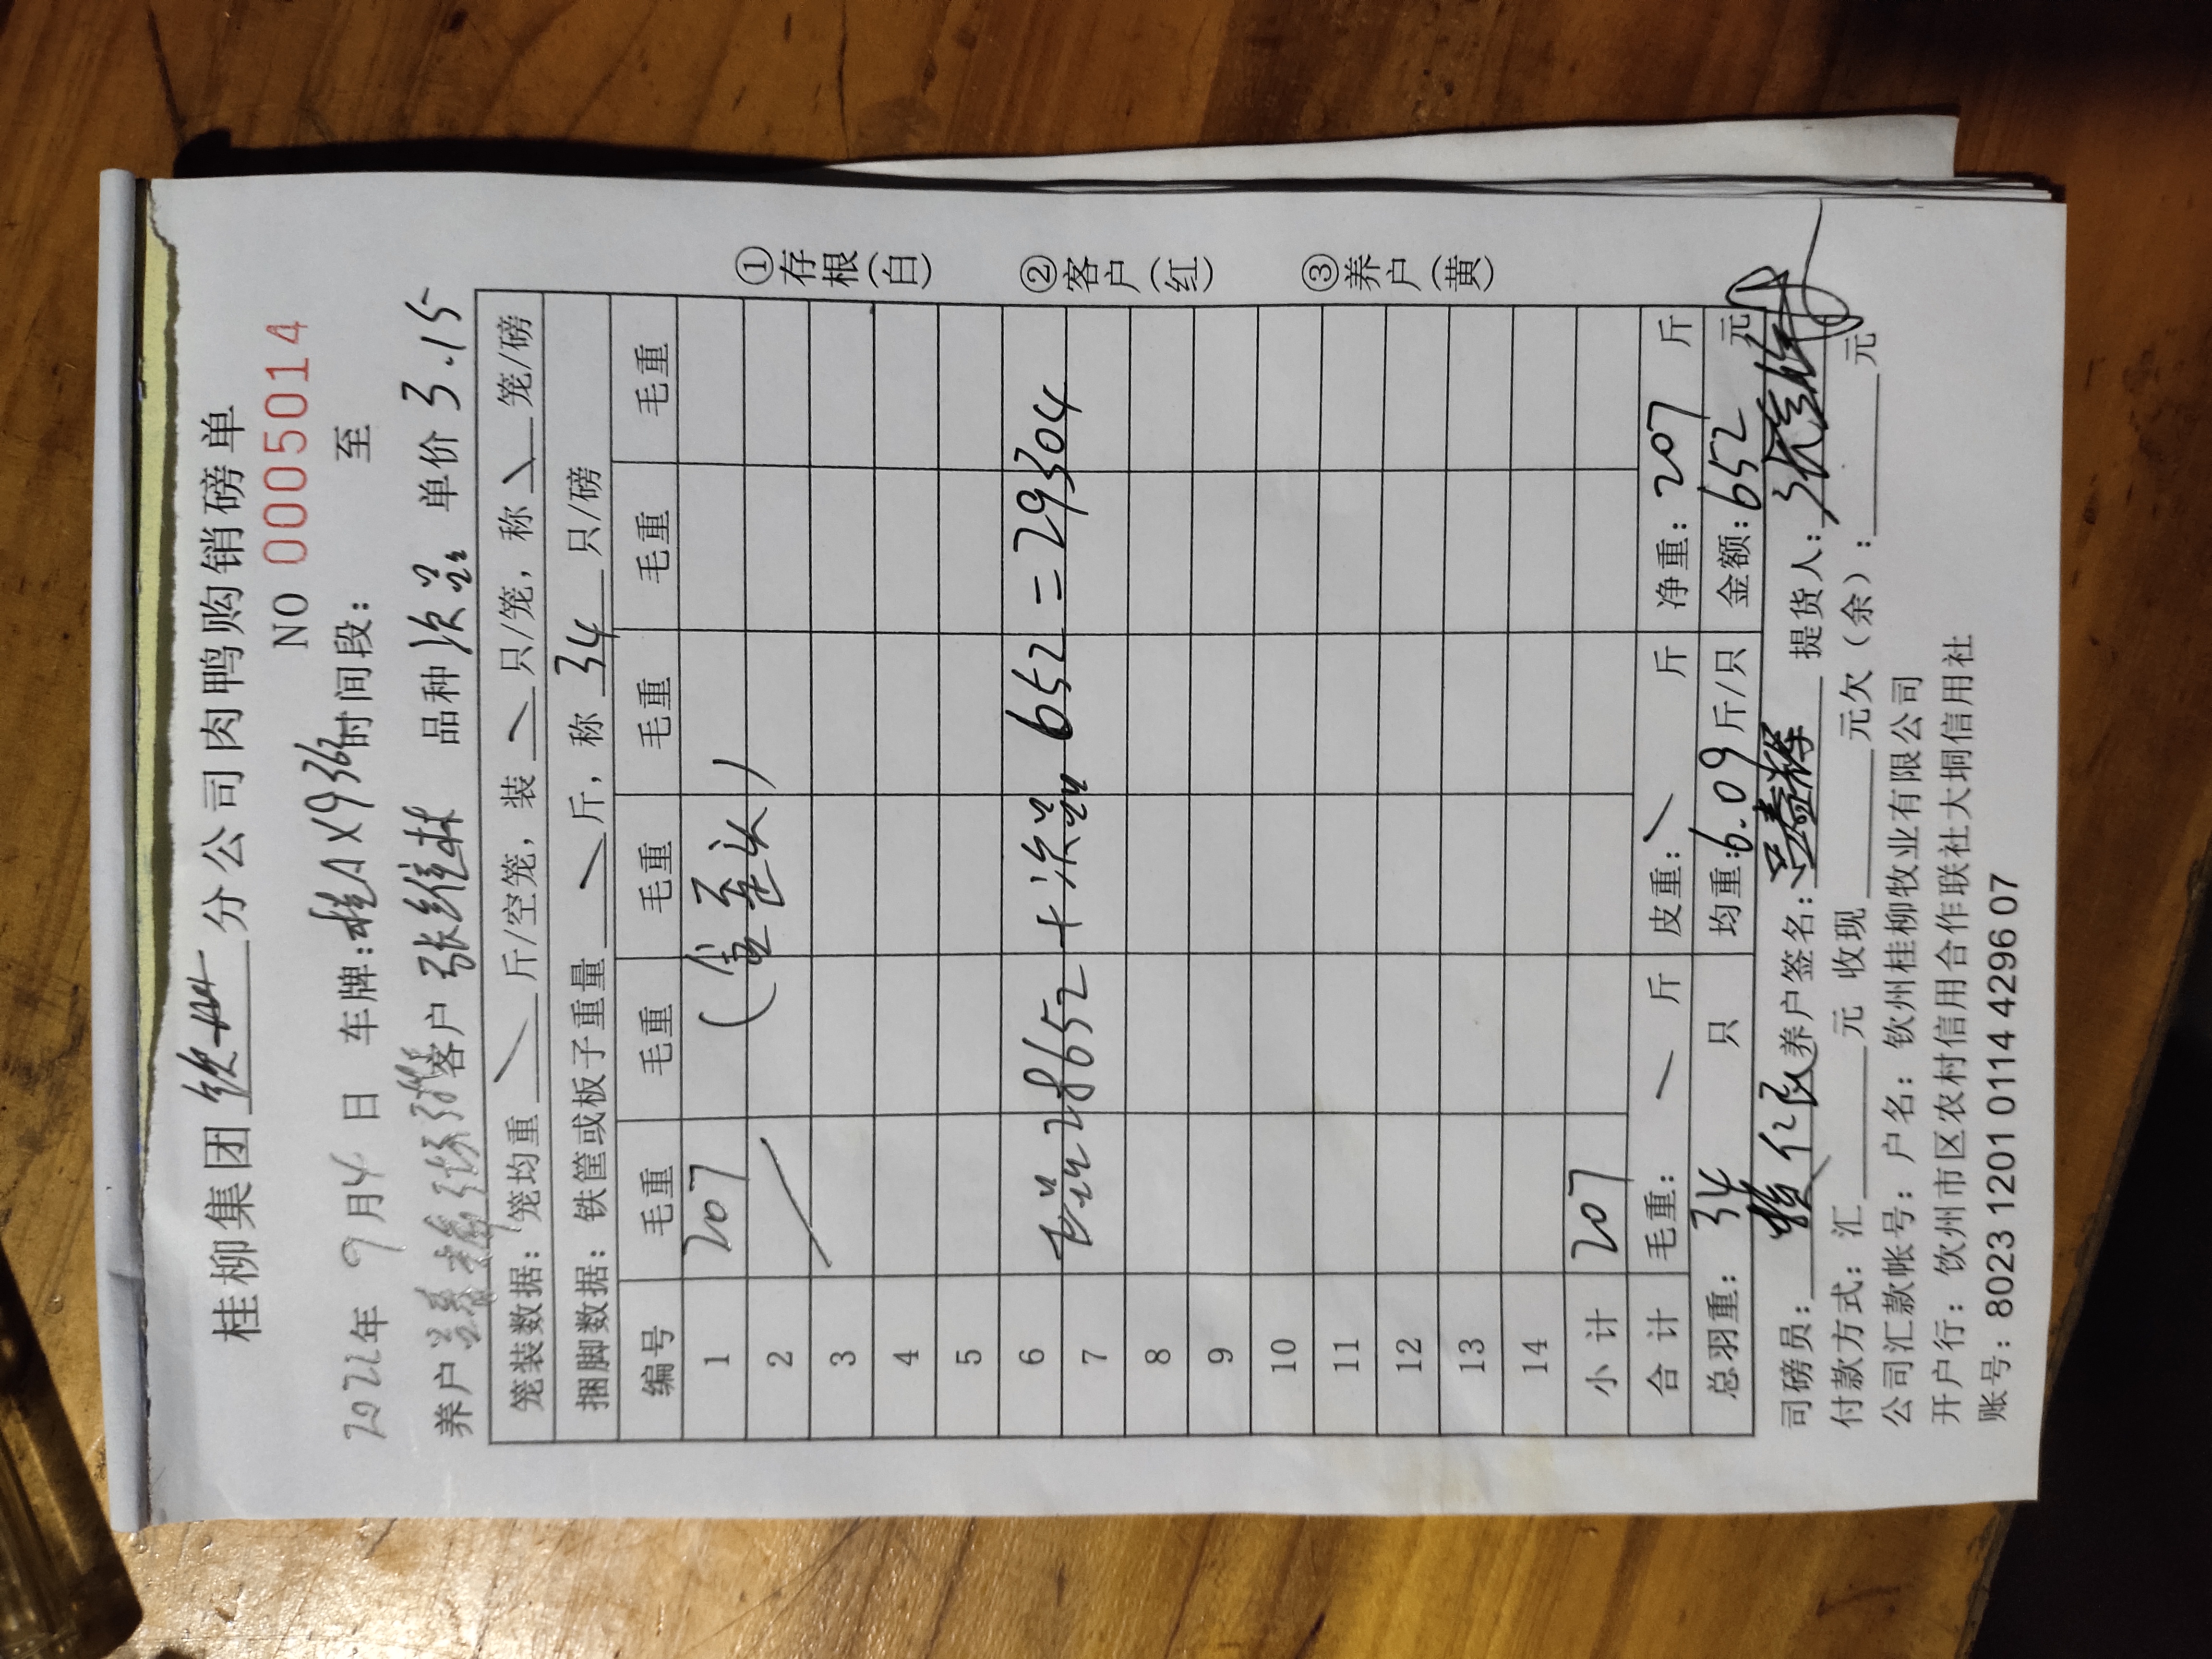 桂柳集团钦州分公司肉鸭购销磅单
NO 0005014
2022年 9月4日 车牌:桂AX936时间段: 至
养户 客户 张继林 品种 次益 单价 3.15
笼装数据:笼均重 斤/空笼,装 只/笼,称 笼/磅
捆脚数据:铁筐或板子重量 斤,称 34 只/磅
编号 毛重 毛重 毛重 毛重 毛重 毛重
1 207 (歪头)
2
3
4
5
6
28652 + 次益 652 = 29304
7
8
9
10
11
12
13
14
小计 207
合计 毛重: 斤 皮重: 斤 净重: 207 斤
总羽重: 34 只 均重:6.09斤/只 金额:652 元
司磅员: 养户签名: 提货人:
付款方式:汇 元 收现 元欠(余): 元
公司汇款帐号:户名:钦州桂柳牧业有限公司
开户行:钦州市区农村信用合作联社大垌信用社
账号:8023 1201 0114 4296 07
①存根(白)
②客户(红)
③养户(黄)